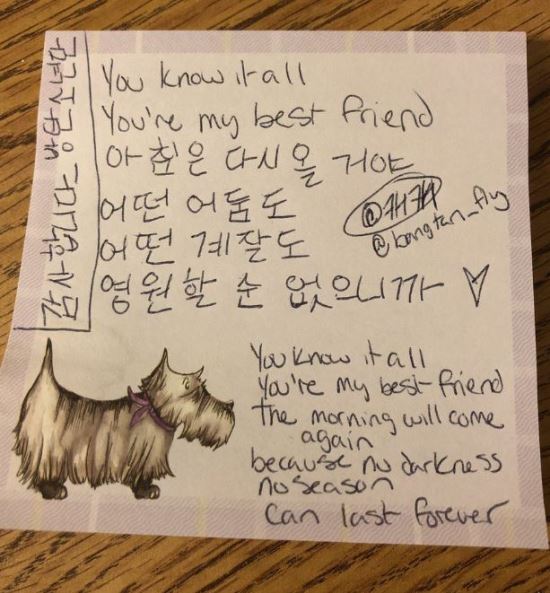 감사합니다 방탄소년단
You know it all
You're my best friend
아침은 다시 올 거야
어떤 어둠도
어떤 계잘도
영원할 순 없으니까
@bangtan_fly
You know it all
You're my best friend
the morning will come
again
because no darkness
no season
can last forever